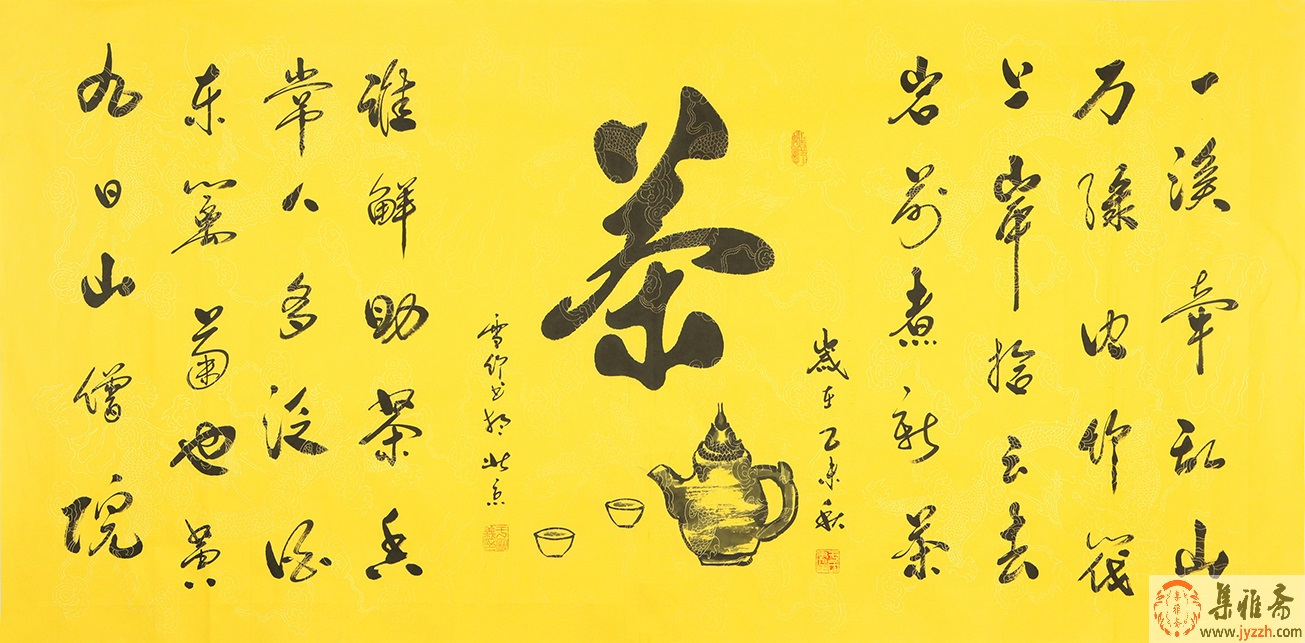 一溪牵乱山
万绿竹筏
上岸拾云去
岩前煮新茶
岁在乙未秋
茶
雪竹书於北京
谁解助茶香
常人多泛酒
东篱菊也黄
九日山僧院
集雅斋
www.jyzzh.com